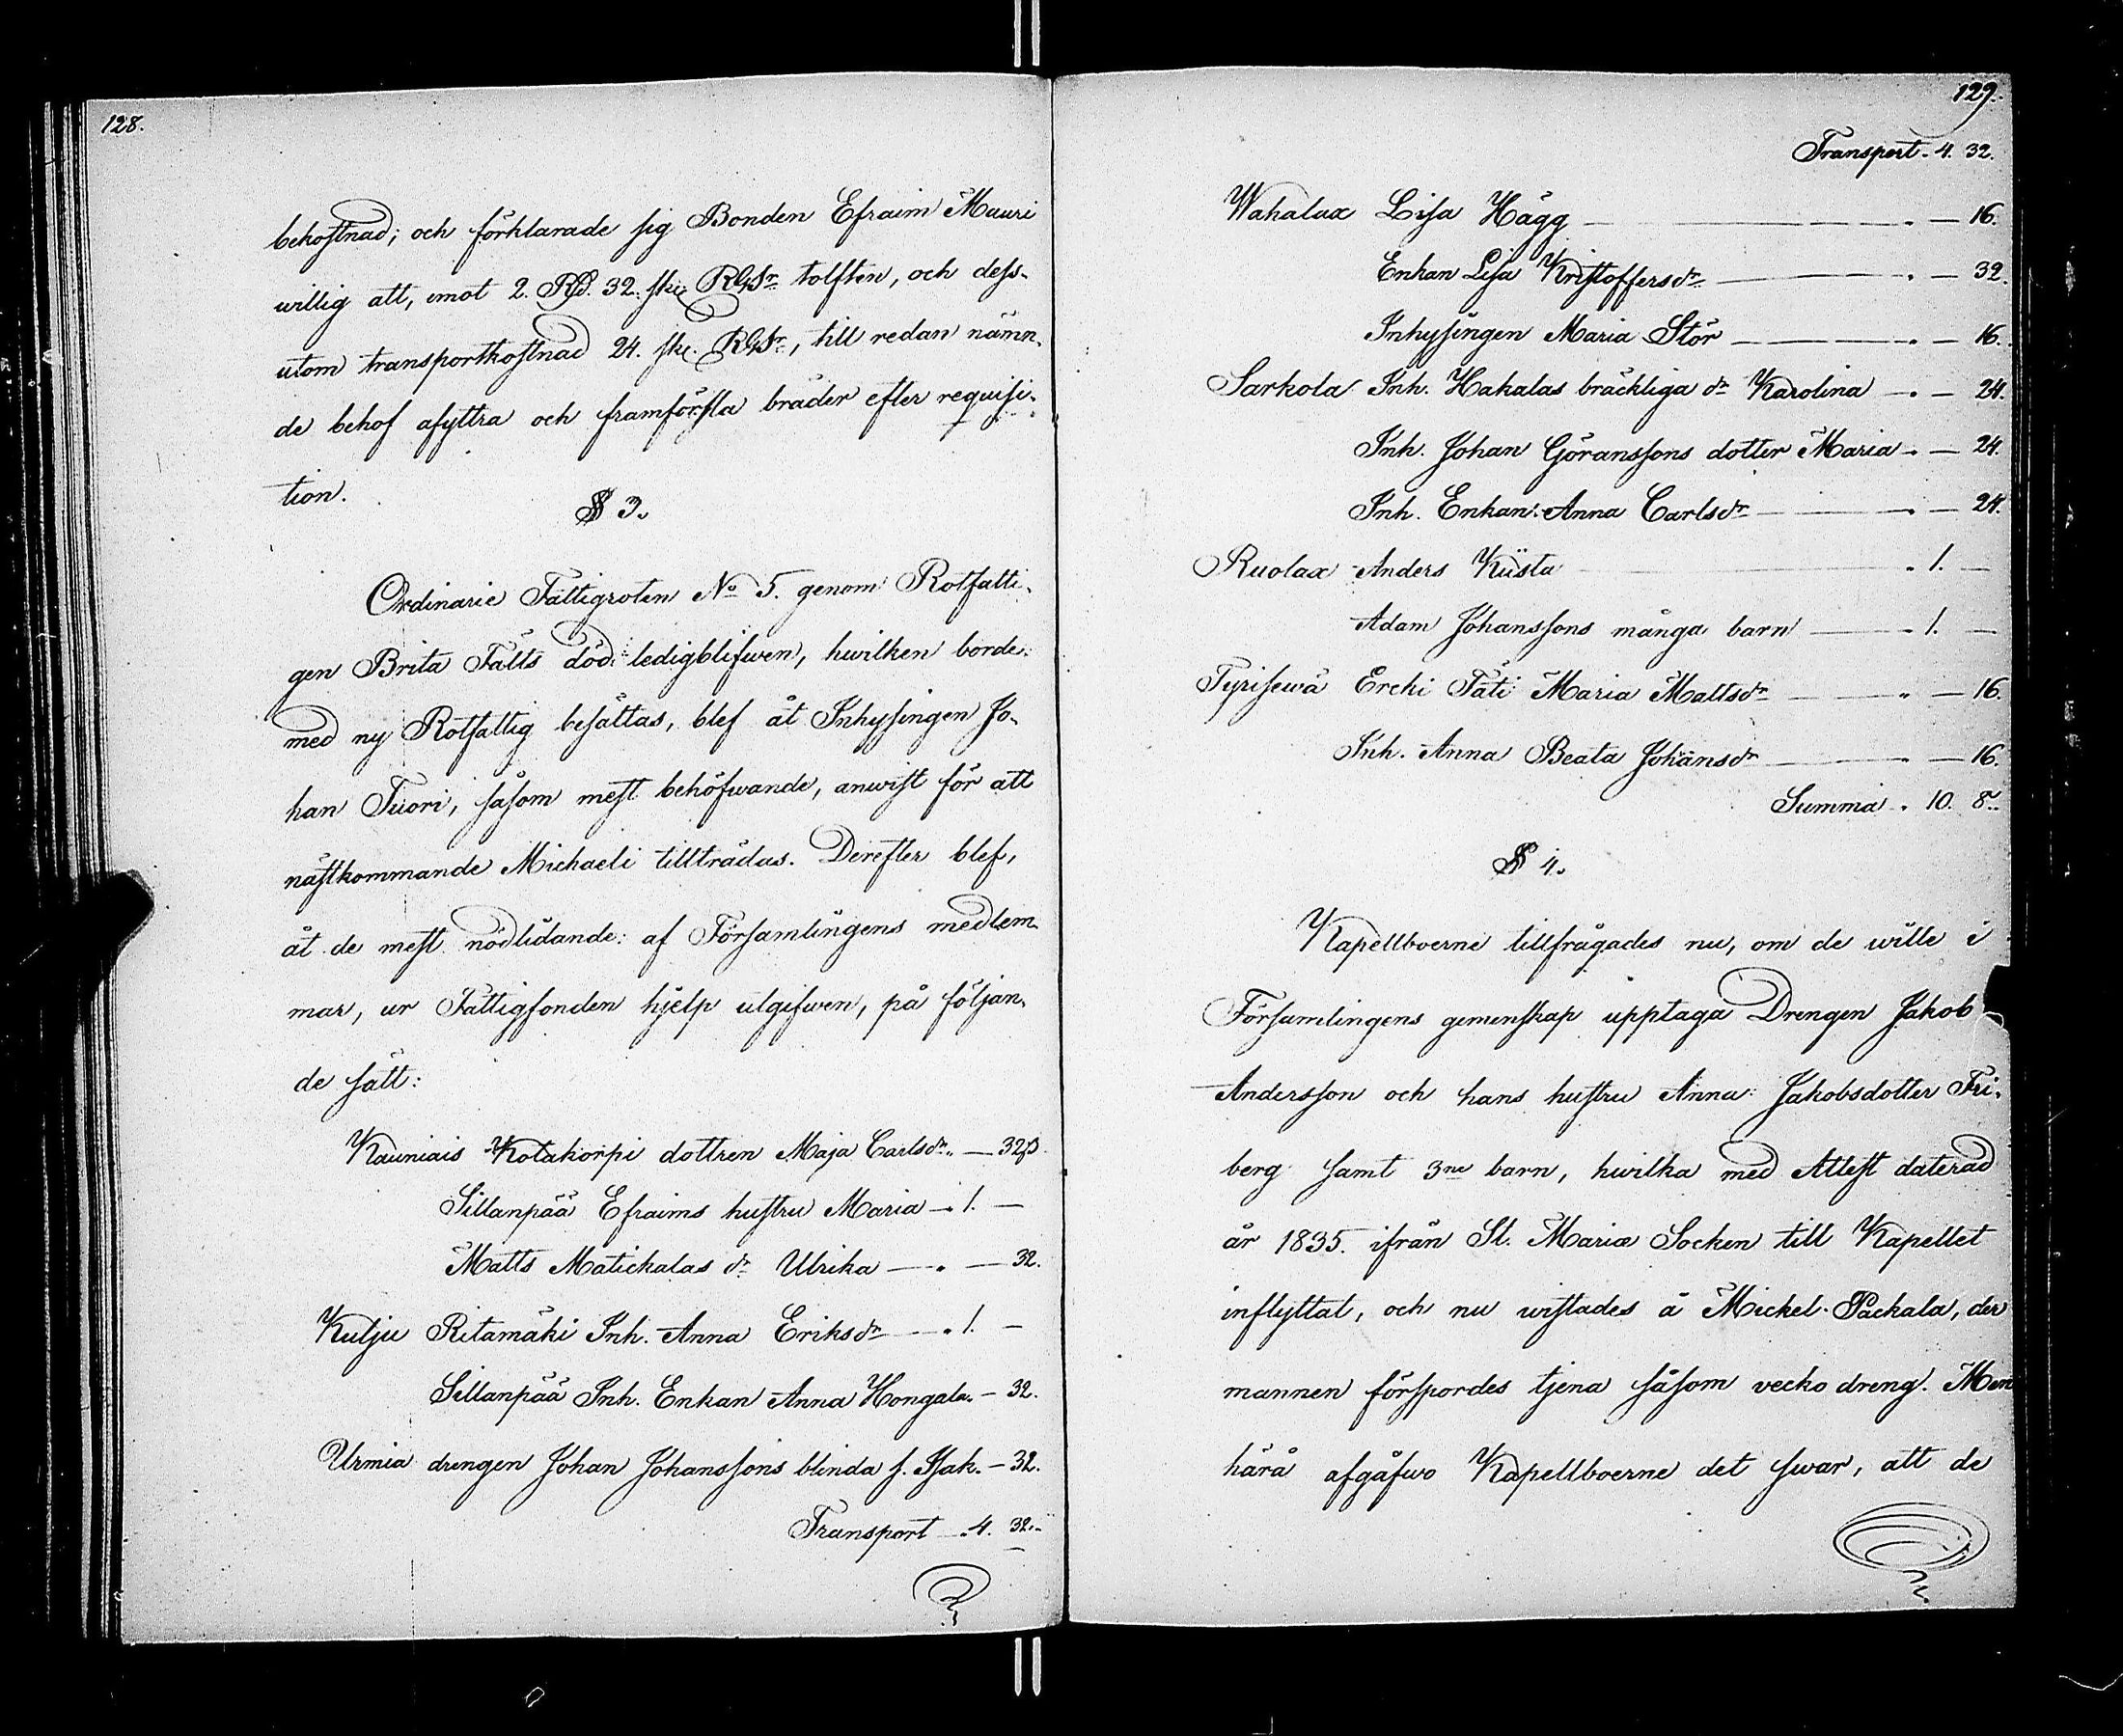 128.
behofstnad; och förklarade sig Bonden Efraim Mauri
willig att, emot 2. Rd. 32. sk. RGSr tolften, och dess-
utom transportkostnad 24. sk. RGSr, till redan nämn-
de behof afyttra och framforsla bräder efter requisi-
tion.
§ 3.
Ordinarie Fattigroten No 5. genom Rotfatti-
gen Brita Fälts död ledigblifwen, hwilken borde
med ny Rotfattig besättas, blef åt Inhysingen Jo-
han Tuori, såsom mest behöfwande, anwist för att
nästkommande Michaeli tillträdas. Derefter blef,
åt de mest nödlidande af Församlingens medlem-
mar, ur Fattigfonden hjelp utgifwen, på följan-
de sätt:
Kauniais Kotakorpi dottren Maja Carlsdr „ — 32 s
Sillanpää Efraims hustru Maria — 1. —
Matts Matickalas dr Ulrika — „ — 32.
Kutju Ritamäki Inh. Anna Eriksdr — „ 1. —
Sillanpää Inh. Enkan Anna Hongala. — 32.
Urmia drengen Johan Johanssons blinda s. Isak. — 32.
Transport — „ 4. 32. „
129.
Transport. 4. 32.
Wahalax Lisa Hägg — „ — 16.
Enkan Lisa Kristoffersdr — „ — 32.
Inhysingen Maria Stör — „ — 16.
Sarkola Inh. Hakalas bräckliga dr Karolina — „ — 24.
Inh. Johan Göranssons dotter Maria „ — 24.
Inh. Enkan Anna Carlsdr — „ — 24.
Ruolax Anders Küsta „ 1. —
Adam Johanssons många barn — „ 1. —
Tyrisewä Ercki Täti Maria Mattsdr — „ — 16.
Inh. Anna Beata Johansdr — „ — 16.
Summa „ 10. 8. „
§ 4.
Kapellboerne tillfrågades nu, om de wille i
Församlingens gemenskap upptaga Drengen Jakob
Andersson och hans hustru Anna Jakobsdotter Fri-
berg samt 3ne barn, hwilka med Attest daterad
år 1835. ifrån St. Mariæ Socken till Kapellet
inflyttat, och nu wistades å Mickel Packala, der
mannen försspordes tjena såsom vecko dreng. Men
härå afgåfwo Kapellboerne det swar, att de